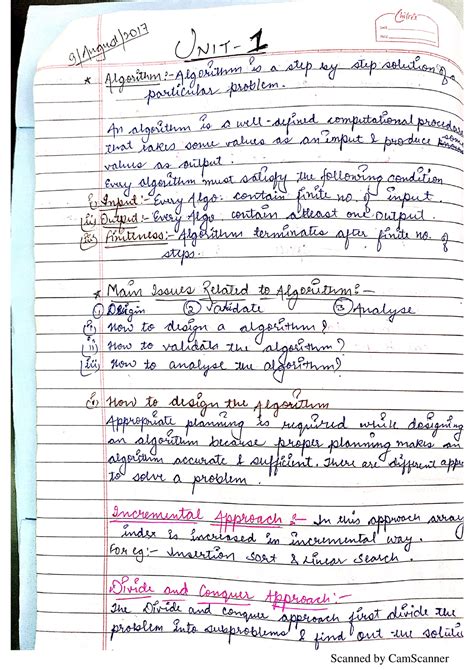 Chilra's
9/August/2017
UNIT-1
* Algorithm:- Algorithm is a step by step solution of a
particular problem.
An algorithm is a well-defined computational procedure
that takes some values as an input & produce some
values as output.
Every algorithm must satisfy the following condition
i) Input:- Every Algo. contain finite no. of input.
ii) Output:- Every Algo contain atleast one output.
iii) Finiteness:- Algorithm terminates after finite no. of
steps.
* Main Issues Related to Algorithm:-
① Design ② Validate ③ Analyse
i) How to design a algorithm?
ii) How to validate the algorithm?
iii) How to analyse the algorithm?
(i) How to design the Algorithm
Appropriate planning is required while designing
an algorithm because proper planning makes an
algorithm accurate & sufficient. There are different appr
to solve a problem.
Incremental Approach:- In this approach array
index is increased in incremental way.
For eg:- Insertion Sort & Linear Search.
Divide and Conquer Approach:-
The Divide and conquer approach first divide the
problem into subproblems & find out the solutio
Scanned by CamScanner